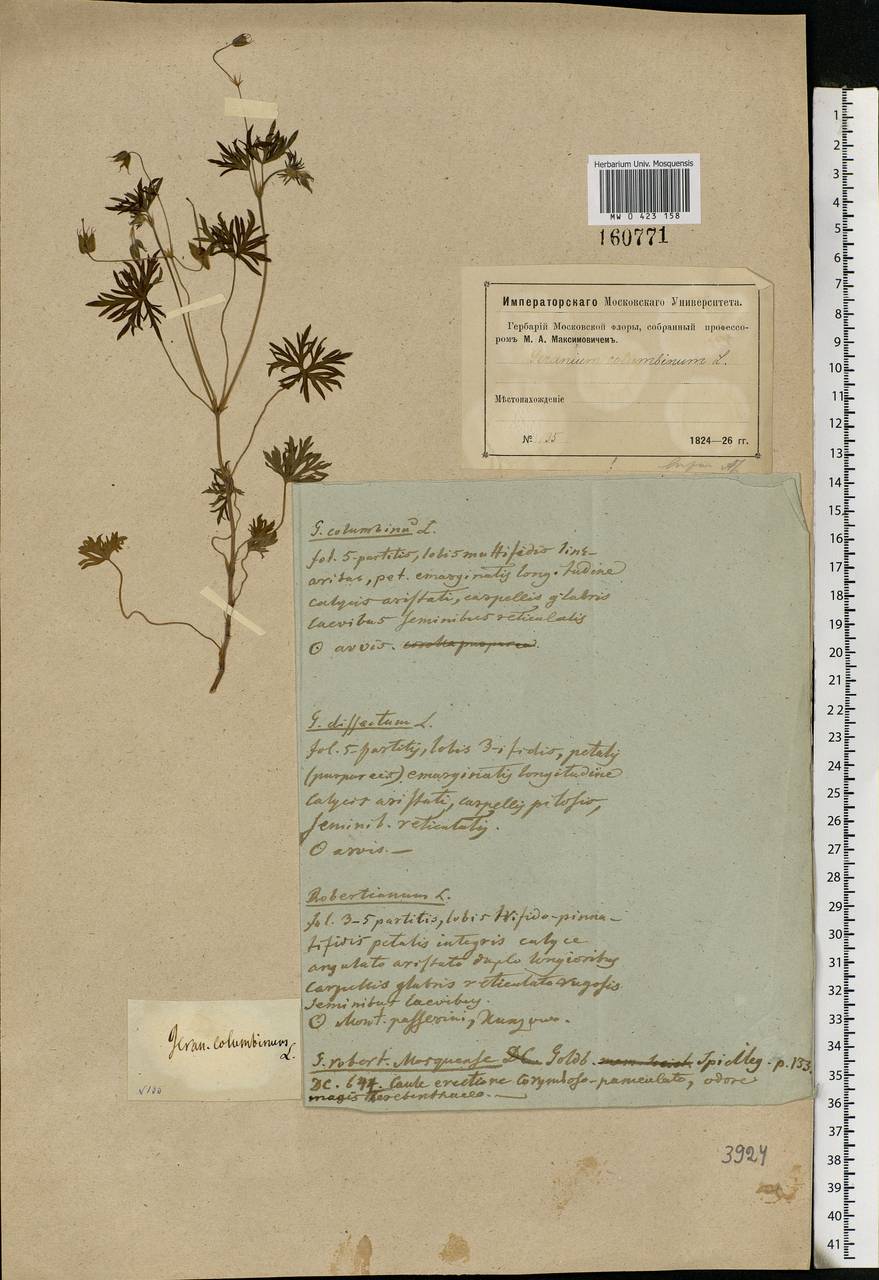 Herbarium Univ. Mosquensis
MW 0 423 158
160771
Императорскаго Московскаго Университета.
Гербарій Московской флоры, собранный профессо-
ромъ М. А. Максимовичемъ.
Geranium columbinum L.
Мѣстонахожденіе
№ 135
1824—26 гг.
G. columbinū L.
fol. 5-partitis, lobis multifidis line-
aribus, pet. emarginatis longitudine
calycis aristati, carpellis glabris
laevibus seminibus reticulatis
⊙ arvis. corolla purpurea.
G. dissectum L.
fol. 5-partitis, lobis 3-ifidis, petalis
(purpureis) emarginatis longitudine
calycis aristati, carpellis pilosis,
seminib. reticulatis.
⊙ arvis. —
Robertianum L.
fol. 3-5 partitis, lobis trifido-pinna-
tifidis petalis integris calyce
angulato aristato duplo longioribus
carpellis glabris reticulato-rugosis
seminibus laevibus.
⊙ Mont. passerini,
G. robert. Mosquense DC. Goldb. Spicileg. p. 133.
DC. 644. Caule erectione corymboso-paniculato, odore
magis terebinthaceo. —
Geran. columbinum
L.
3924
1
2
3
4
5
6
7
8
9
10
11
12
13
14
15
16
17
18
19
20
21
22
23
24
25
26
27
28
29
30
31
32
33
34
35
36
37
38
39
40
41